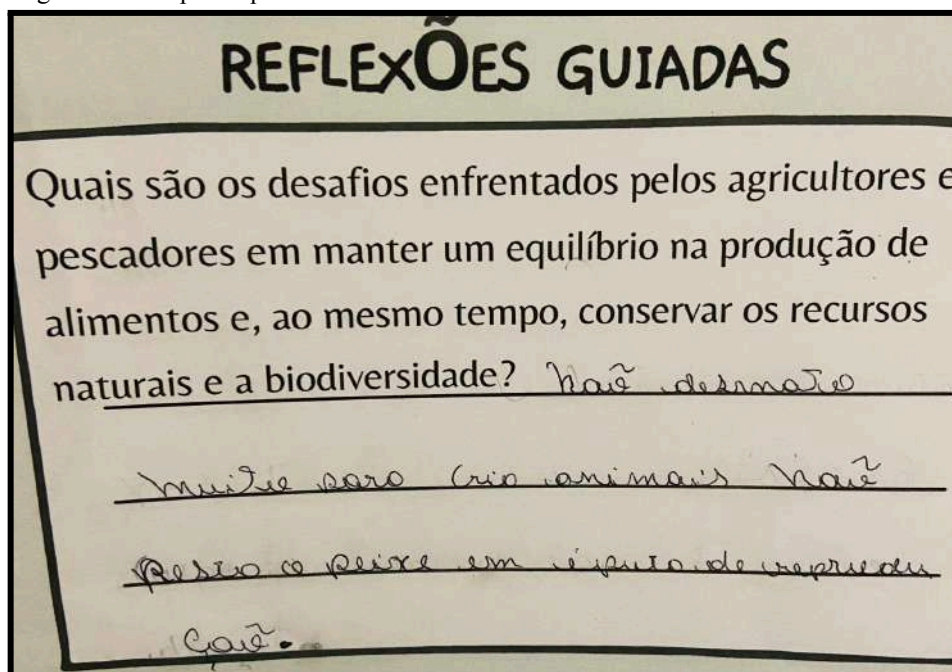 REFLEXÕES GUIADAS
Quais são os desafios enfrentados pelos agricultores e
pescadores em manter um equilíbrio na produção de
alimentos e, ao mesmo tempo, conservar os recursos
naturais e a biodiversidade? não desmata
muito para cria animais não
o peixe em de reprodu
ção.